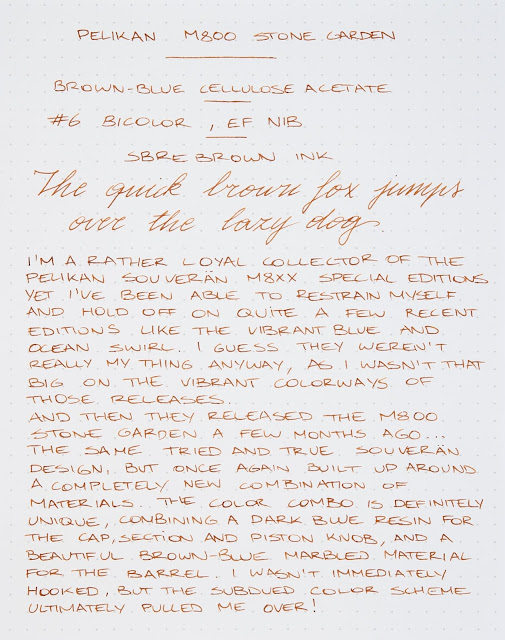 PELIKAN M800 STONE GARDEN
BROWN-BLUE CELLULOSE ACETATE
#6 BICOLOR, EF NIB
SBRE BROWN INK
The quick brown fox jumps
over the lazy dog.
I'M A RATHER LOYAL COLLECTOR OF THE
PELIKAN SOUVERÄN M8XX SPECIAL EDITIONS
YET I'VE BEEN ABLE TO RESTRAIN MYSELF
AND HOLD OFF ON QUITE A FEW RECENT
EDITIONS LIKE THE VIBRANT BLUE AND
OCEAN SWIRL.. I GUESS THEY WEREN'T
REALLY MY THING ANYWAY, AS I WASN'T THAT
BIG ON THE VIBRANT COLORWAYS OF
THOSE RELEASES..
AND THEN THEY RELEASED THE M800
STONE GARDEN A FEW MONTHS AGO...
THE SAME TRIED AND TRUE SOUVERÄN
DESIGN, BUT ONCE AGAIN BUILT UP AROUND
A COMPLETELY NEW COMBINATION OF
MATERIALS.. THE COLOR COMBO IS DEFINITELY
UNIQUE, COMBINING A DARK BLUE RESIN FOR
THE CAP, SECTION AND PISTON KNOB, AND A
BEAUTIFUL BROWN-BLUE MARBLED MATERIAL
FOR THE BARREL. I WASN'T IMMEDIATELY
HOOKED, BUT THE SUBDUED COLOR SCHEME
ULTIMATELY PULLED ME OVER!